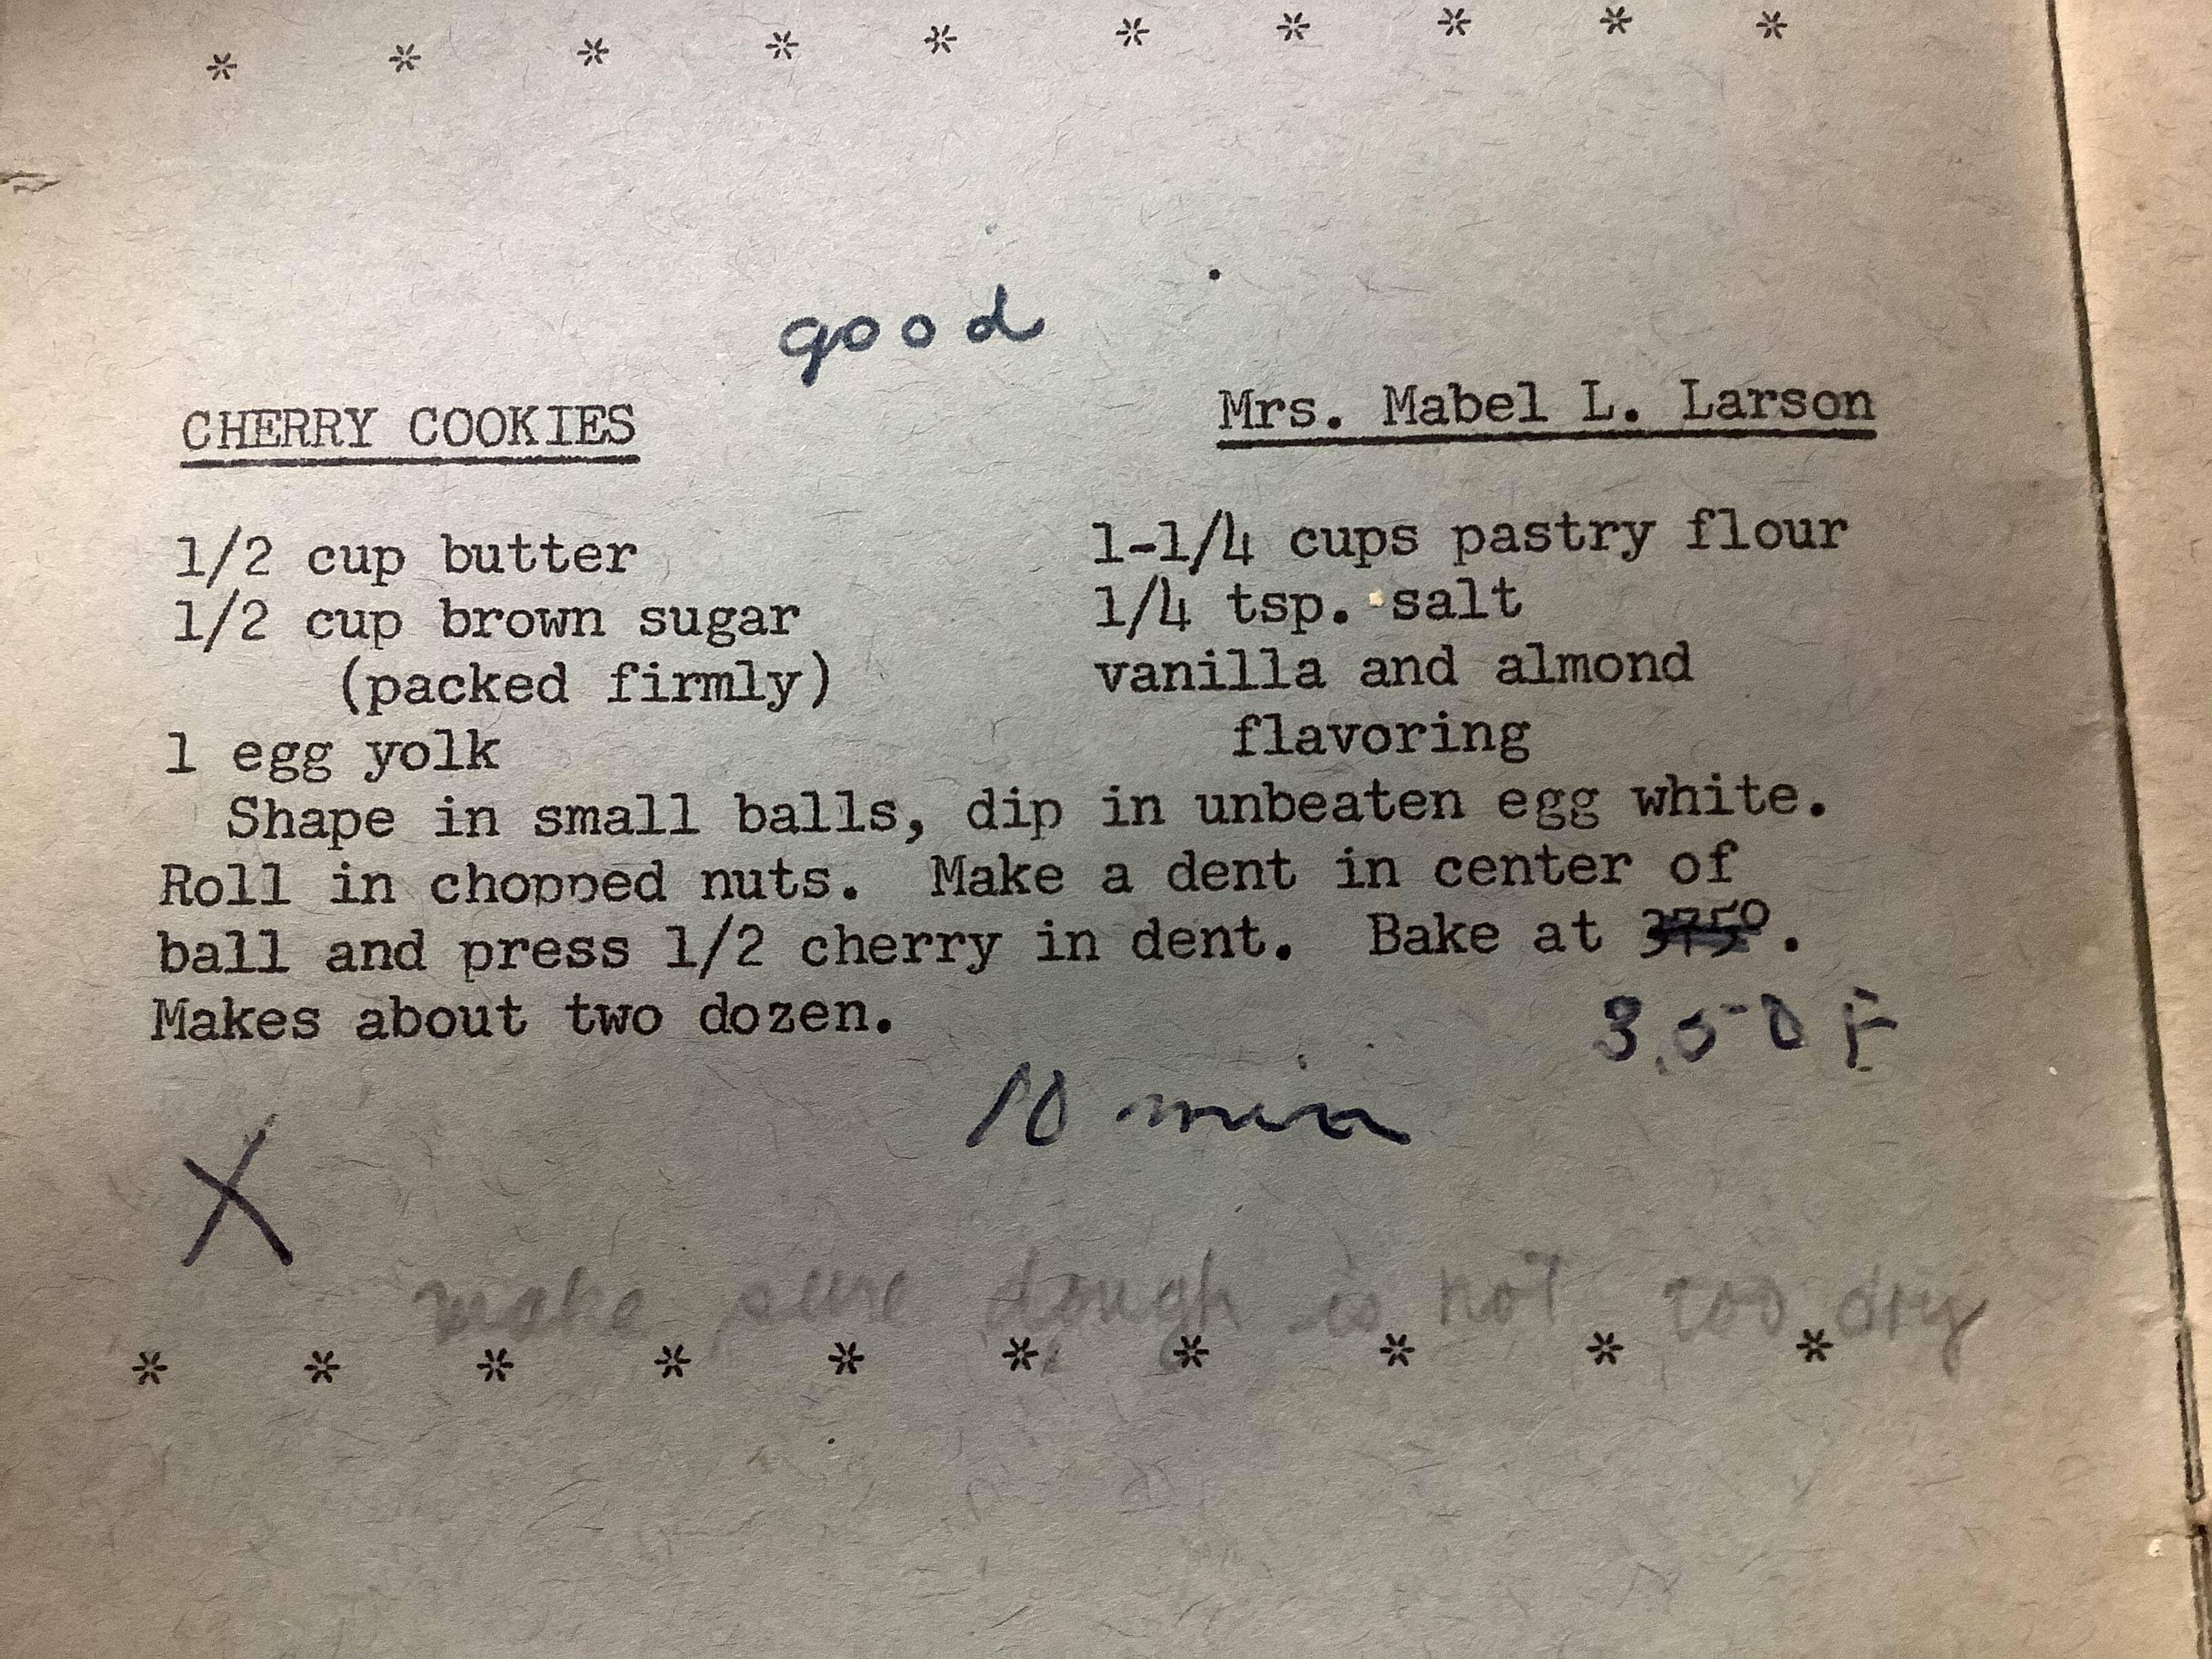 * * * * * * * * * *
good
CHERRY COOKIES Mrs. Mabel L. Larson
1/2 cup butter 1-1/4 cups pastry flour
1/2 cup brown sugar 1/4 tsp. salt
(packed firmly) vanilla and almond
1 egg yolk flavoring
Shape in small balls, dip in unbeaten egg white.
Roll in chopped nuts. Make a dent in center of
ball and press 1/2 cherry in dent. Bake at 375°.
Makes about two dozen. 350 F
10 min
X
make sure dough is not too dry
* * * * * * * * * *